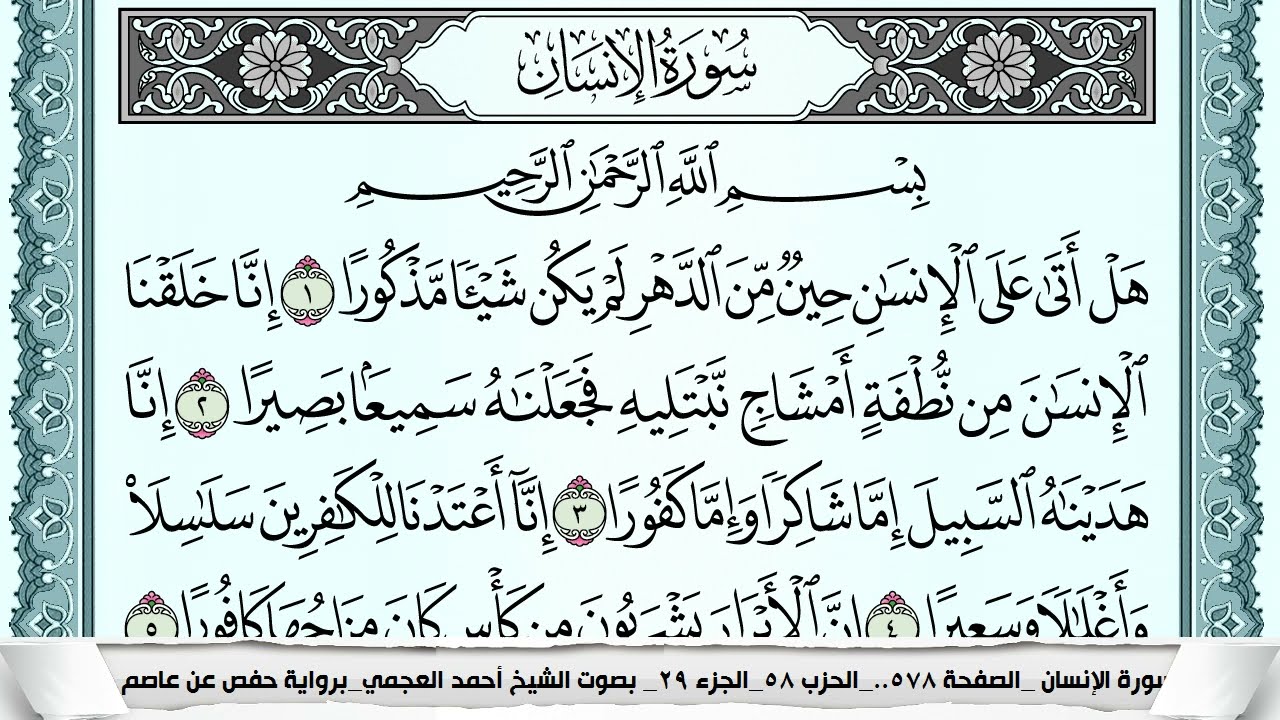 سُورَةُ الْإِنسَانِ
بِسْمِ ٱللَّهِ ٱلرَّحْمَٰنِ ٱلرَّحِيمِ
هَلْ أَتَىٰ عَلَى ٱلْإِنسَٰنِ حِينٌ مِّنَ ٱلدَّهْرِ لَمْ يَكُن شَيْـًٔا مَّذْكُورًا ١ إِنَّا خَلَقْنَا
ٱلْإِنسَٰنَ مِن نُّطْفَةٍ أَمْشَاجٍ نَّبْتَلِيهِ فَجَعَلْنَٰهُ سَمِيعًۢا بَصِيرًا ٢ إِنَّا
هَدَيْنَٰهُ ٱلسَّبِيلَ إِمَّا شَاكِرًا وَإِمَّا كَفُورًا ٣ إِنَّآ أَعْتَدْنَا لِلْكَٰفِرِينَ سَلَٰسِلَا۟
وَأَغْلَٰلًا وَسَعِيرًا ٤ إِنَّ ٱلْأَبْرَارَ يَشْرَبُونَ مِن كَأْسٍ كَانَ مِزَاجُهَا كَافُورًا ٥
سورة الإنسان _الصفحة ٥٧٨.._الحزب ٥٨_الجزء ٢٩_ بصوت الشيخ أحمد العجمي_برواية حفص عن عاصم